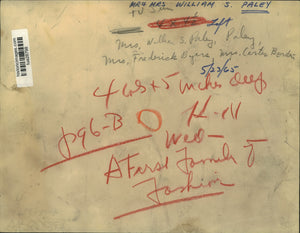 MR & MRS WILLIAM S. PALEY
Left
Mrs. William S. Paley, Paley,
Mrs. Frederick Byers, Mrs. Carter Burden
5/23/65
4 cols + 5 inches deep
p96-B
H-M
Wed-
A First Family of
Fashion